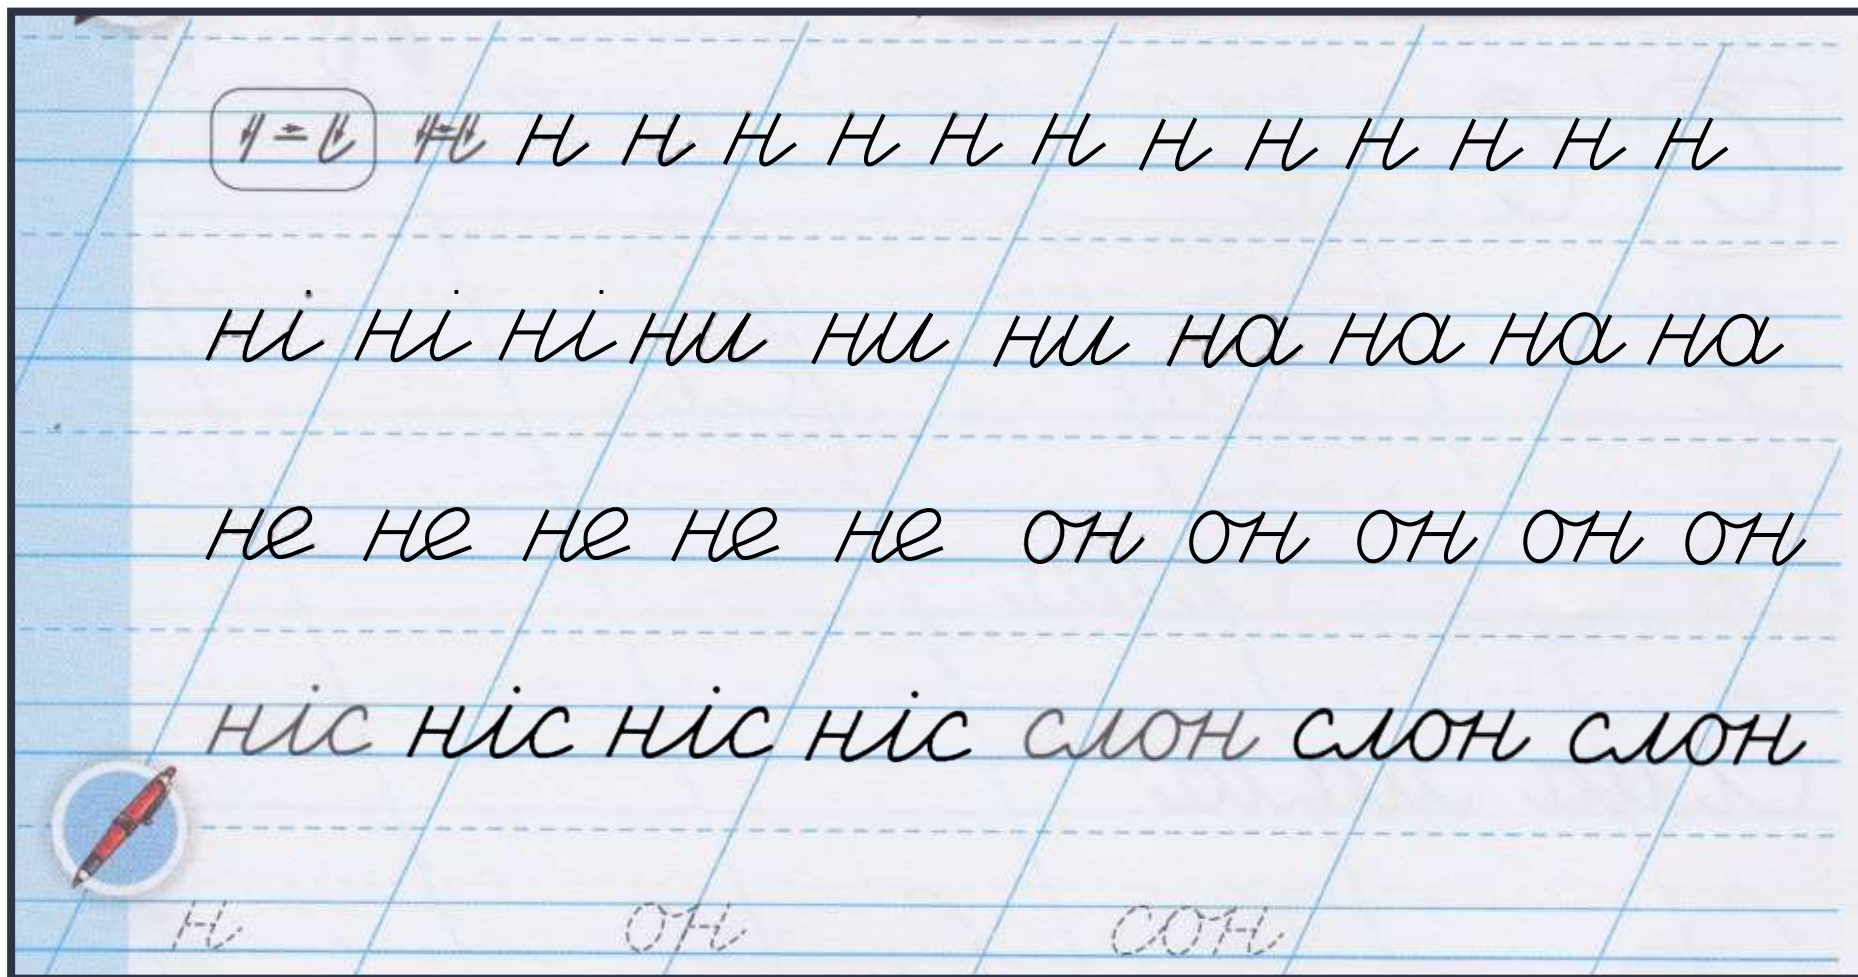 н н н н н н н н н н н н н
ні ні ні ни ни ни на на на на
не не не не не он он он он он
ніс ніс ніс ніс слон слон слон
н он сон